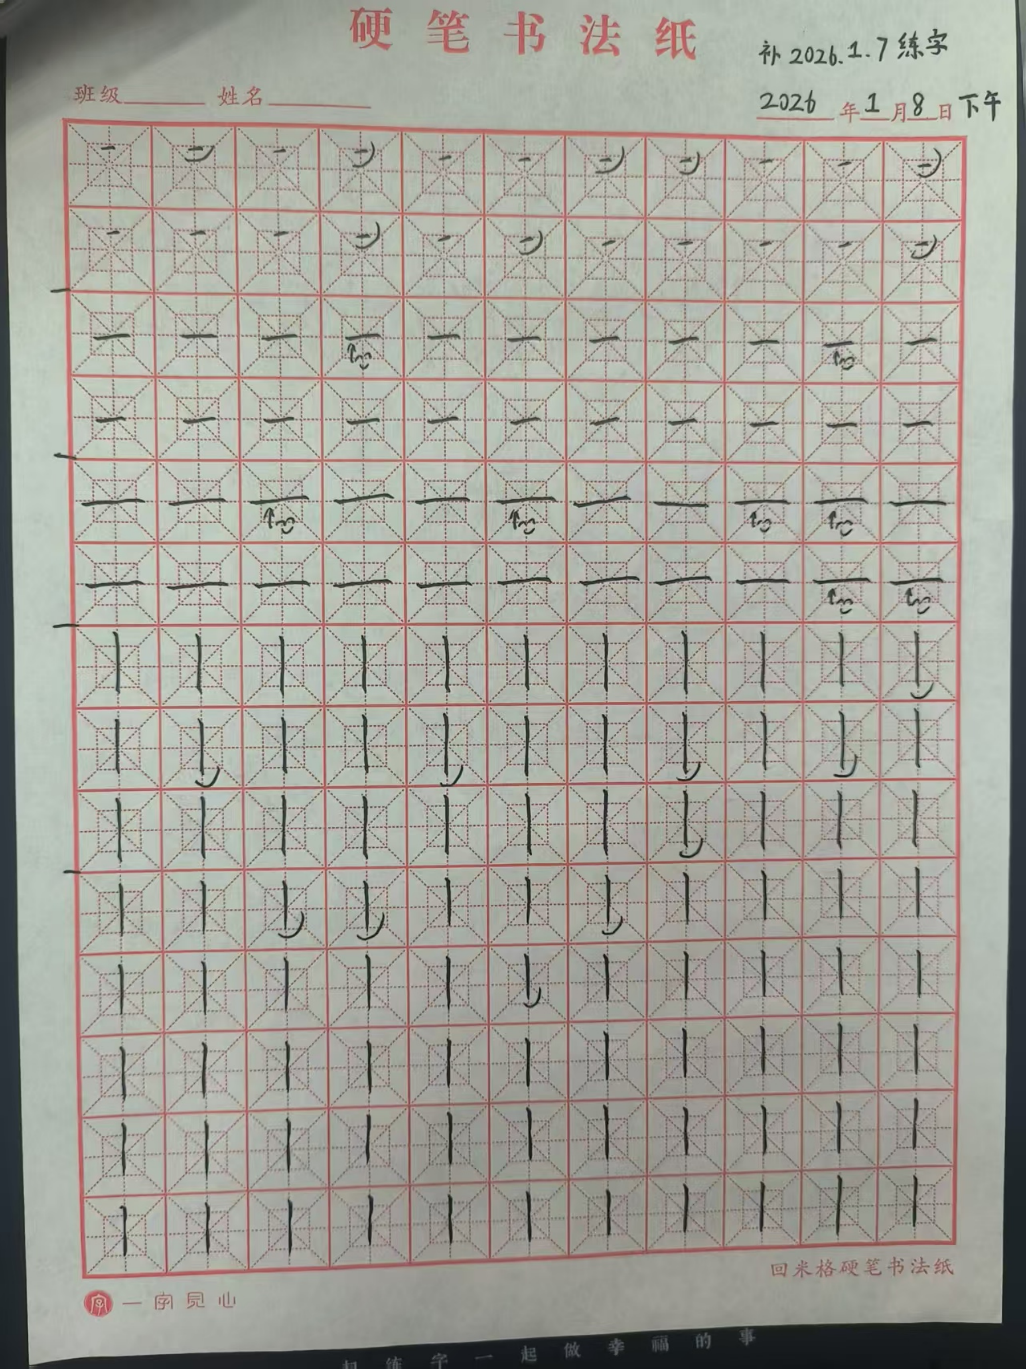 硬笔书法纸
补 2026.1.7 练字
班级 姓名
2026 年 1 月 8 日 下午
回米格硬笔书法纸
字 一字见心
起练字一起做幸福的事